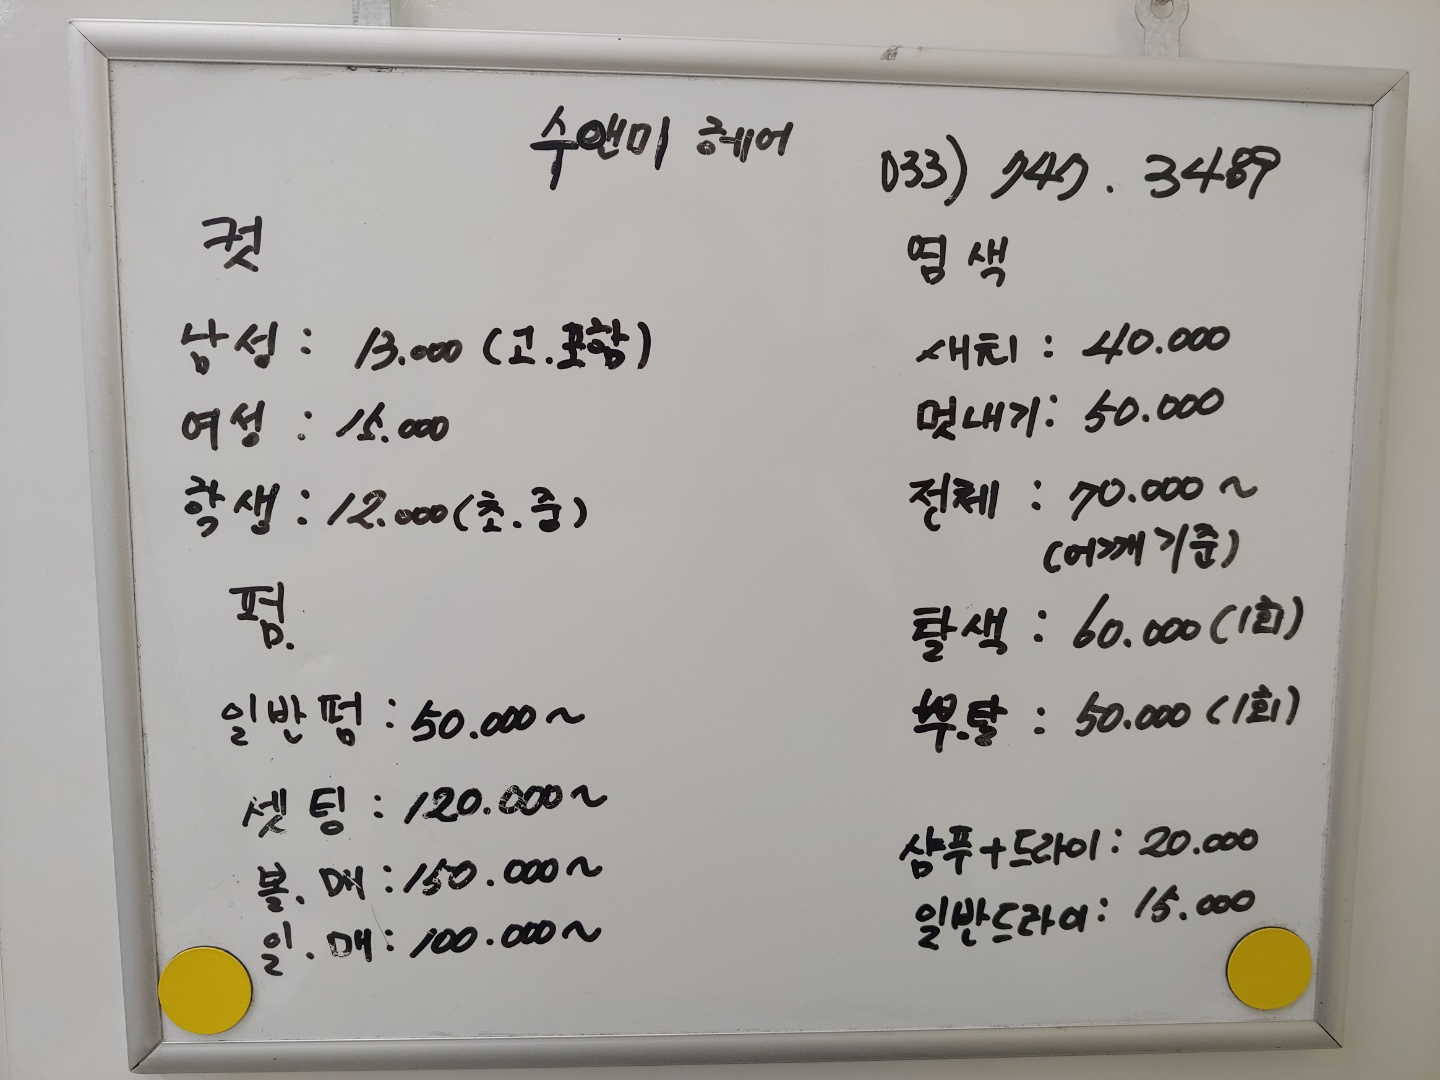 수앤미 헤어
033) 747. 3489
컷
남성 : 13.000 (고.포함)
여성 : 15.000
학생 : 12.000 (초.중)
펌.
일반펌 : 50.000~
셋팅 : 120.000~
볼.매 : 150.000~
일.매 : 100.000~
염색
새치 : 40.000
멋내기 : 50.000
전체 : 70.000~
(어깨기준)
탈색 : 60.000 (1회)
뿌.탈 : 50.000 (1회)
샴푸+드라이 : 20.000
일반드라이 : 15.000